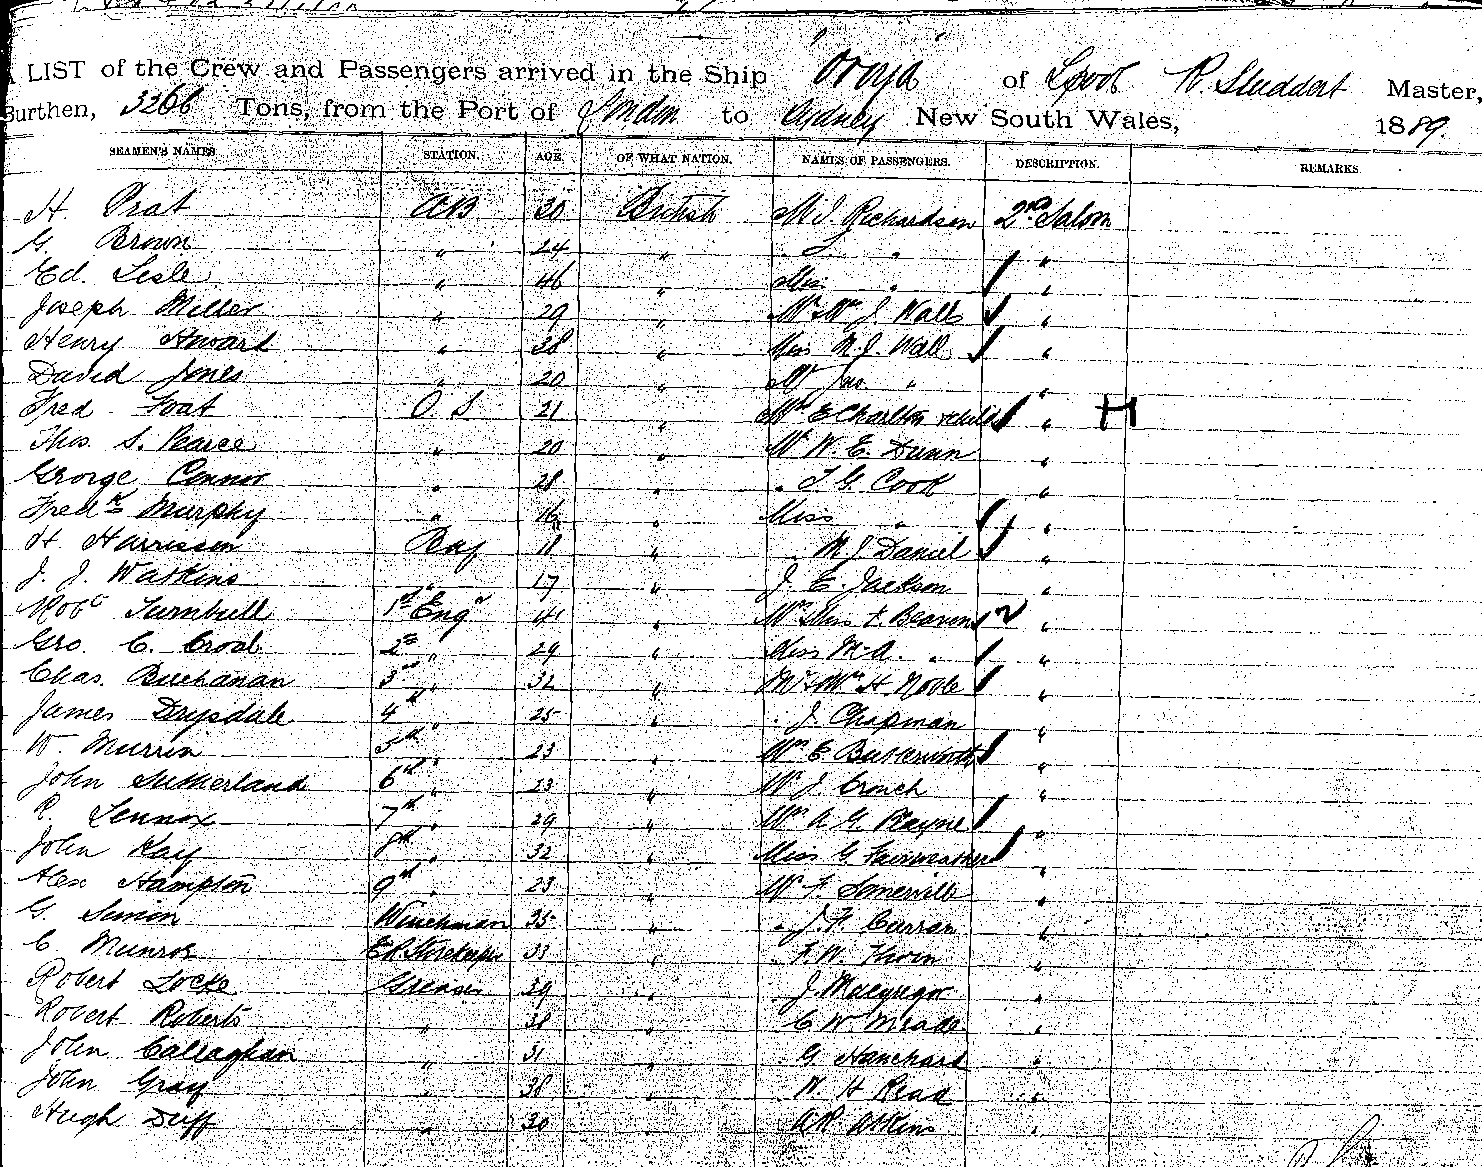 A LIST of the Crew and Passengers arrived in the Ship Oroya of Lpool R. Studdert Master,
Burthen, 3266 Tons, from the Port of London to Sydney New South Wales, 1889.
SEAMEN'S NAMES. STATION. AGE. OF WHAT NATION. NAMES OF PASSENGERS. DESCRIPTION. REMARKS.
H. Prat AB 30 British M J. Richardson 2nd Saloon
G. Brown " 24 " " "
Ed. Lesle " 46 " Miss " "
Joseph Miller " 29 " Mr & Mrs J. Wall "
Henry Stewart " 38 " Miss M. J. Wall "
David Jones " 20 " Mr Jno. " "
Fred Foat O S 21 " Mrs E Charlton & child " H
Thos. S. Pearce " 20 " Mr W. E. Dunn "
George Connor " 28 " " T. G. Cook "
Fredk Murphy " 16 " Miss " "
H Harrisson Boy 18 " " M J Daniel "
J. J. Watkins " 17 " J. E. Jackson "
Robt Turnbull 1st Engr 41 " Mrs & Miss F. Beavens "
Geo. C. Croal 2nd " 29 " Miss M. A. " "
Chas. Buchanan 3rd " 32 " Mr & Mrs H. Noble "
James Drysdale 4th " 25 " " J. Chapman "
W. Murrin 5th " 23 " Mrs E Butterworth "
John Sutherland 6th " 23 " Mr J. Crouch "
R. Lennox 7th " 29 " Mrs A. G. Playne "
John Kay 8th " 32 " Miss G. Fairweather "
Alex Hampton 9th " 23 " Mr F. Somerville "
G. Simon Winchman 35 " " J. F. Curran "
C. Munroe ER Storekeeper 33 " " F. W. Thorn "
Robert Locke Greaser 39 " J. Macgregor "
Robert Roberts " 38 " C W Meade "
John Callaghan " 31 " " G Hanchard "
John Gray " 38 " W. H Read "
Hugh Duff " 30 " A R Atkins "